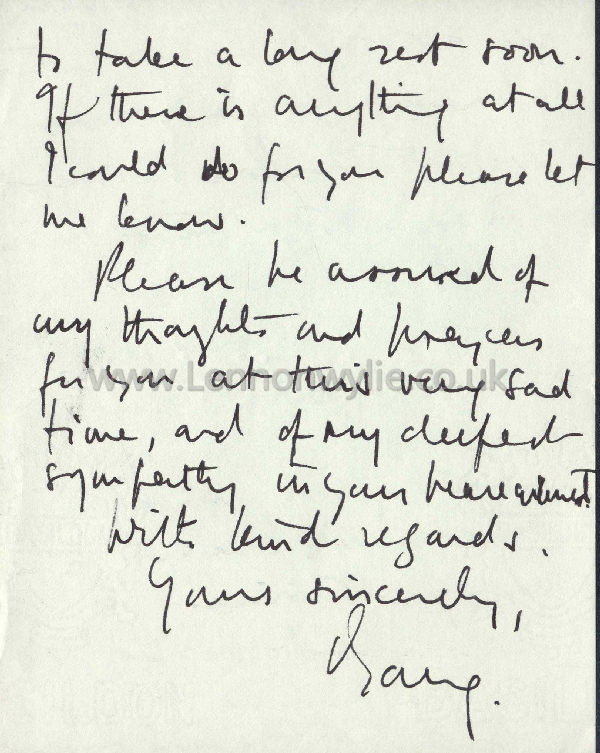 to take a long rest soon.
If there is anything at all
I could do for you please let
me know.
Please be assured of
my thoughts and prayers
for you at this very sad
time, and of my deepest
sympathy in your bereavement.
With kind regards.
Yours sincerely,
www.Lennonwylie.co.uk